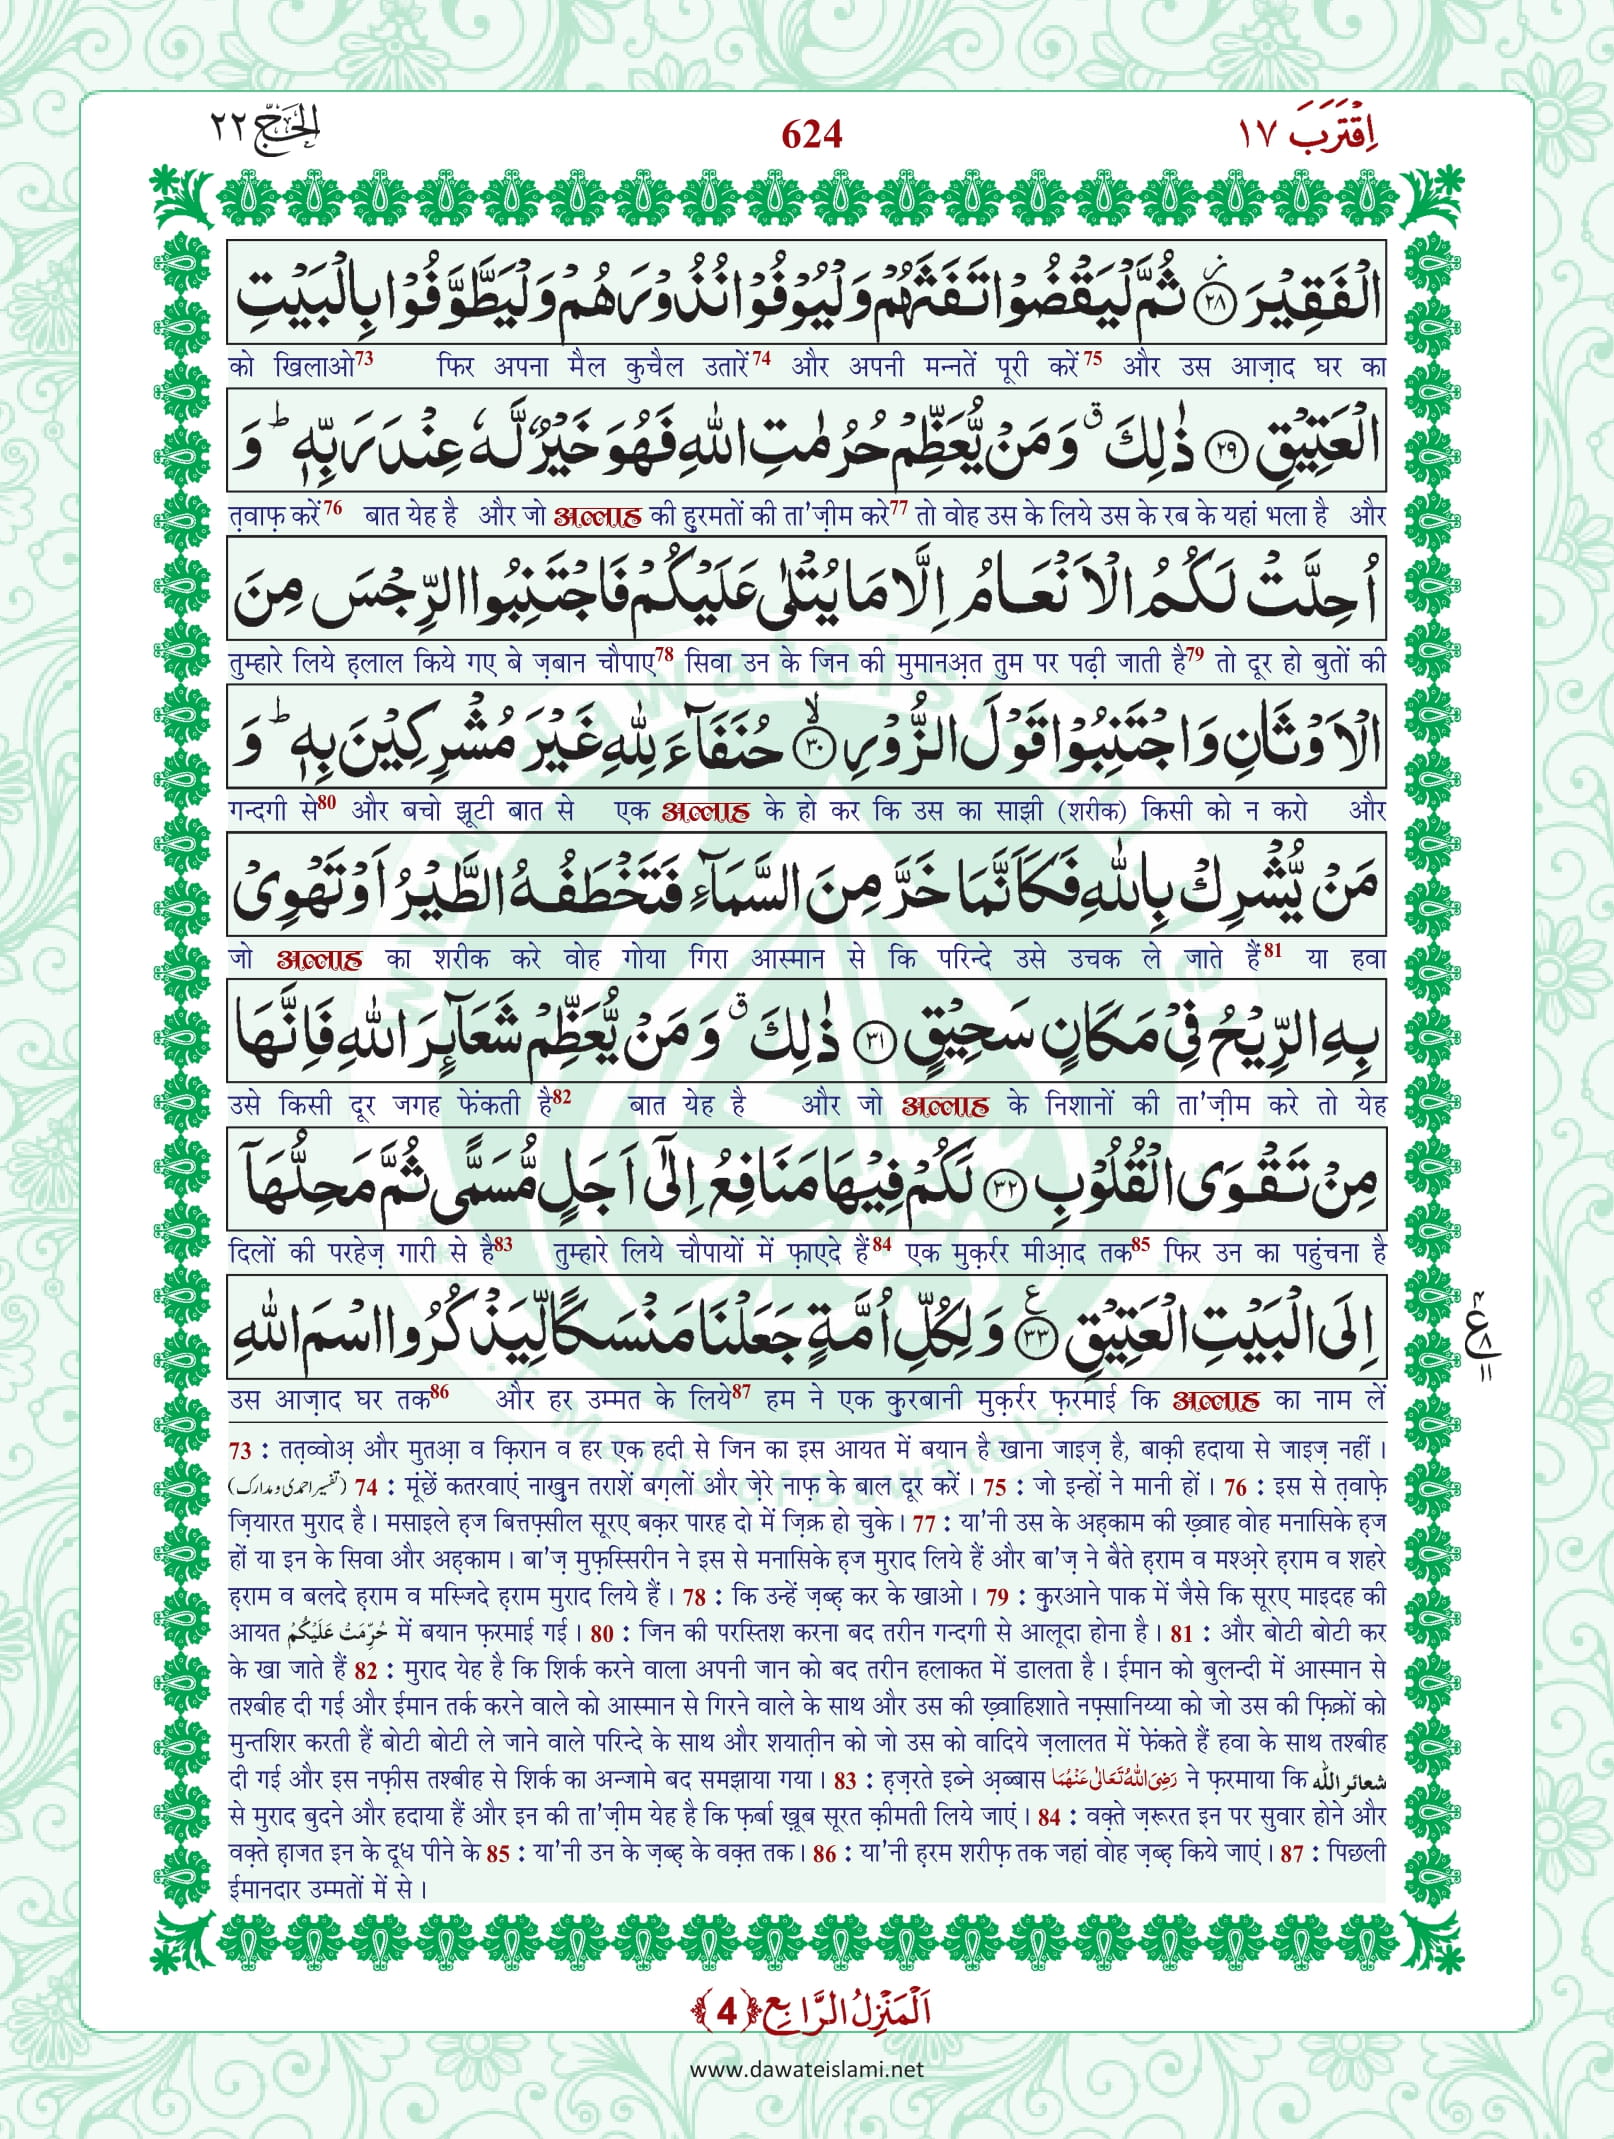 اِقْتَرَبَ ١٧ 624 الْحَجّ ٢٢
الْفَقِیْرَ ﴿۲۸﴾ ثُمَّ لْیَقْضُوْا تَفَثَهُمْ وَلْیُوْفُوْا نُذُوْرَهُمْ وَلْیَطَّوَّفُوْا بِالْبَیْتِ
को खिलाओ73 फिर अपना मैल कुचैल उतारें74 और अपनी मन्नतें पूरी करें75 और उस आज़ाद घर का
الْعَتِیْقِ ﴿۲۹﴾ ذٰلِكَ ۗ وَمَنْ یُّعَظِّمْ حُرُمٰتِ اللّٰهِ فَهُوَ خَیْرٌ لَّهٗ عِنْدَ رَبِّهٖ ؕ وَ
त़वाफ़ करें76 बात येह है और जो अल्लाह की हुरमतों की ता'ज़ीम करे77 तो वोह उस के लिये उस के रब के यहां भला है और
اُحِلَّتْ لَكُمُ الْاَنْعَامُ اِلَّا مَا یُتْلٰى عَلَیْكُمْ فَاجْتَنِبُوا الرِّجْسَ مِنَ
तुम्हारे लिये ह़लाल किये गए बे ज़बान चौपाए78 सिवा उन के जिन की मुमानअ़त तुम पर पढ़ी जाती है79 तो दूर हो बुतों की
الْاَوْثَانِ وَاجْتَنِبُوْا قَوْلَ الزُّوْرِ ﴿۳۰﴾ۙ حُنَفَآءَ لِلّٰهِ غَیْرَ مُشْرِكِیْنَ بِهٖ ؕ وَ
गन्दगी से80 और बचो झूटी बात से एक अल्लाह के हो कर कि उस का साझी (शरीक) किसी को न करो और
مَنْ یُّشْرِكْ بِاللّٰهِ فَكَاَنَّمَا خَرَّ مِنَ السَّمَآءِ فَتَخْطَفُهُ الطَّیْرُ اَوْ تَهْوِیْ
जो अल्लाह का शरीक करे वोह गोया गिरा आस्मान से कि परिन्दे उसे उचक ले जाते हैं81 या हवा
بِهِ الرِّیْحُ فِیْ مَكَانٍ سَحِیْقٍ ﴿۳۱﴾ ذٰلِكَ ۗ وَمَنْ یُّعَظِّمْ شَعَآئِرَ اللّٰهِ فَاِنَّهَا
उसे किसी दूर जगह फेंकती है82 बात येह है और जो अल्लाह के निशानों की ता'ज़ीम करे तो येह
مِنْ تَقْوَى الْقُلُوْبِ ﴿۳۲﴾ لَكُمْ فِیْهَا مَنَافِعُ اِلٰۤى اَجَلٍ مُّسَمًّى ثُمَّ مَحِلُّهَاۤ
दिलों की परहेज़ गारी से है83 तुम्हारे लिये चौपायों में फ़ाएदे हैं84 एक मुक़र्रर मीआ़द तक85 फिर उन का पहुंचना है
اِلَى الْبَیْتِ الْعَتِیْقِ ﴿۳۳﴾ع وَلِكُلِّ اُمَّةٍ جَعَلْنَا مَنْسَكًا لِّیَذْكُرُوا اسْمَ اللّٰهِ
٤ ع ٨ ١١
उस आज़ाद घर तक86 और हर उम्मत के लिये87 हम ने एक क़ुरबानी मुक़र्रर फ़रमाई कि अल्लाह का नाम लें
73 : तत़व्वोअ़ और मुतआ़ व क़िरान व हर एक हदी से जिन का इस आयत में बयान है खाना जाइज़ है, बाक़ी हदाया से जाइज़ नहीं ।
(تفسیر احمدی و مدارک) 74 : मूंछें कतरवाएं नाख़ुन तराशें बग़लों और ज़ेरे नाफ़ के बाल दूर करें । 75 : जो इन्हों ने मानी हों । 76 : इस से त़वाफ़े
ज़ियारत मुराद है । मसाइले ह़ज बित्तफ़्सील सूरए बक़र पारह दो में ज़िक्र हो चुके । 77 : या'नी उस के अह़काम की ख़्वाह वोह मनासिके ह़ज
हों या इन के सिवा और अह़काम । बा'ज़ मुफ़स्सिरीन ने इस से मनासिके ह़ज मुराद लिये हैं और बा'ज़ ने बैते ह़राम व मश्अ़रे ह़राम व शहरे
ह़राम व बलदे ह़राम व मस्जिदे ह़राम मुराद लिये हैं । 78 : कि उन्हें ज़ब्ह़ कर के खाओ । 79 : क़ुरआने पाक में जैसे कि सूरए माइदह की
आयत حُرِّمَتْ عَلَیْكُمُ में बयान फ़रमाई गई । 80 : जिन की परस्तिश करना बद तरीन गन्दगी से आलूदा होना है । 81 : और बोटी बोटी कर
के खा जाते हैं 82 : मुराद येह है कि शिर्क करने वाला अपनी जान को बद तरीन हलाकत में डालता है । ईमान को बुलन्दी में आस्मान से
तश्बीह दी गई और ईमान तर्क करने वाले को आस्मान से गिरने वाले के साथ और उस की ख़्वाहिशाते नफ़्सानिय्या को जो उस की फ़िक्रों को
मुन्तशिर करती हैं बोटी बोटी ले जाने वाले परिन्दे के साथ और शयात़ीन को जो उस को वादिये ज़लालत में फेंकते हैं हवा के साथ तश्बीह
दी गई और इस नफ़ीस तश्बीह से शिर्क का अन्जामे बद समझाया गया । 83 : ह़ज़रते इब्ने अ़ब्बास رَضِیَ اللّٰهُ تَعَالٰی عَنْهُمَا ने फ़रमाया कि شعائر اللّٰه
से मुराद बुदने और हदाया हैं और इन की ता'ज़ीम येह है कि फ़र्बा ख़ूब सूरत क़ीमती लिये जाएं । 84 : वक़्ते ज़रूरत इन पर सुवार होने और
वक़्ते ह़ाजत इन के दूध पीने के 85 : या'नी उन के ज़ब्ह़ के वक़्त तक । 86 : या'नी ह़रम शरीफ़ तक जहां वोह ज़ब्ह़ किये जाएं । 87 : पिछली
ईमानदार उम्मतों में से ।
اَلْمَنْزِلُ الرَّابِع ﴿4﴾
www.dawateislami.net